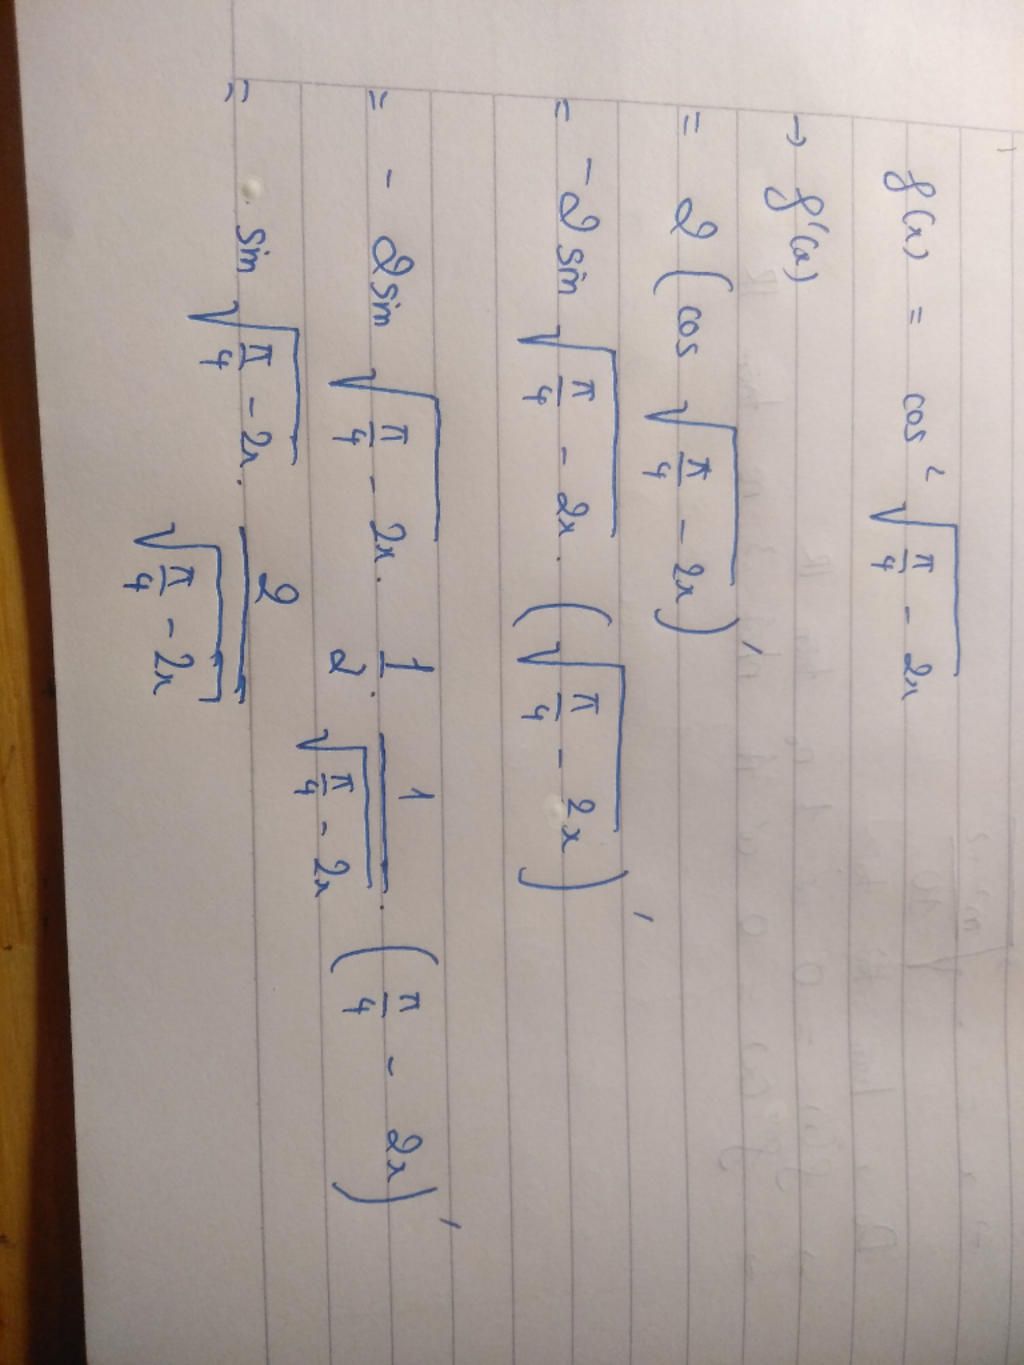 f(x) = cos² √(π/4 - 2x)
→ f'(x)
= 2 (cos √(π/4 - 2x))'
= -2 sin √(π/4 - 2x) . (√(π/4 - 2x))'
= - 2 sin √(π/4 - 2x) . 1/2 . 1/√(π/4 - 2x) . (π/4 - 2x)'
= sin √(π/4 - 2x) . 2/√(π/4 - 2x)